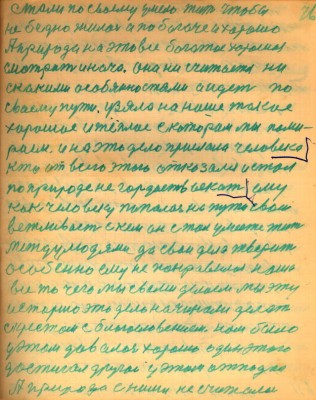 26
стали по своему умело жить чтобы
не бедно жилося а побогаче и хорошо
А природа на это все богатое хорошее
смотрит иначе. Она не считается ни
с какими особенностями а идет по
своему пути. узяла на наше такое
хорошее и тёплое с которым мы поми-
раем. и на это дело пришла человека
кто от всего этого отказался и стал
по природе не гордость искать ему
как человеку попалося на пути свои
вежливость с кем он стал уметь жить
между людями да свои дела творить
особенно ему не понравилося наше
все то чего мы своими делаем мы эту
историю это дело начинали делать
с крестом с благословением. нам было
у этом давалося хорошо один этого
достигал другой у этом отпадал
А природа с ними не считалася